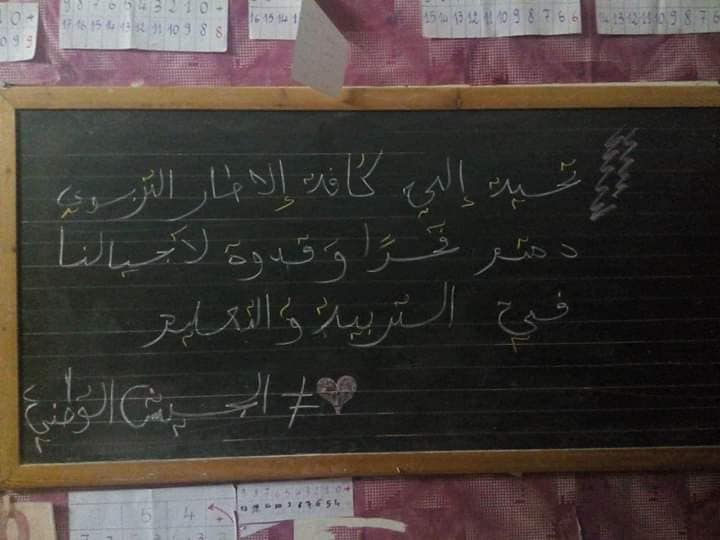 تحية إلى كافة إلاطار التربوي
دمتم فخرًا وقدوة لأجيالنا
في التربية والتعليم
#الجيش الوطني